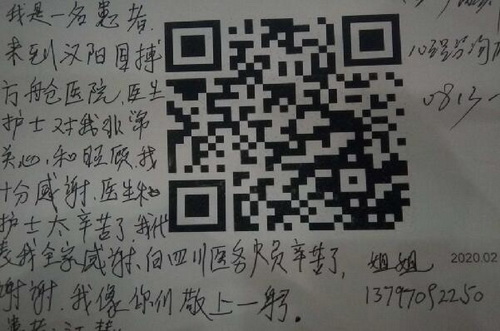 我是一名患者.
来到汉阳国搏
方舱医院,医生
护士对我非常
关心,和旺顾,我
十分感谢,医生和
护士太辛苦了,我代
表我全家感谢,向四川医务人员辛苦了,
谢谢.我像你们敬上一躬.
0813-
姐姐
2020.02
13797092250